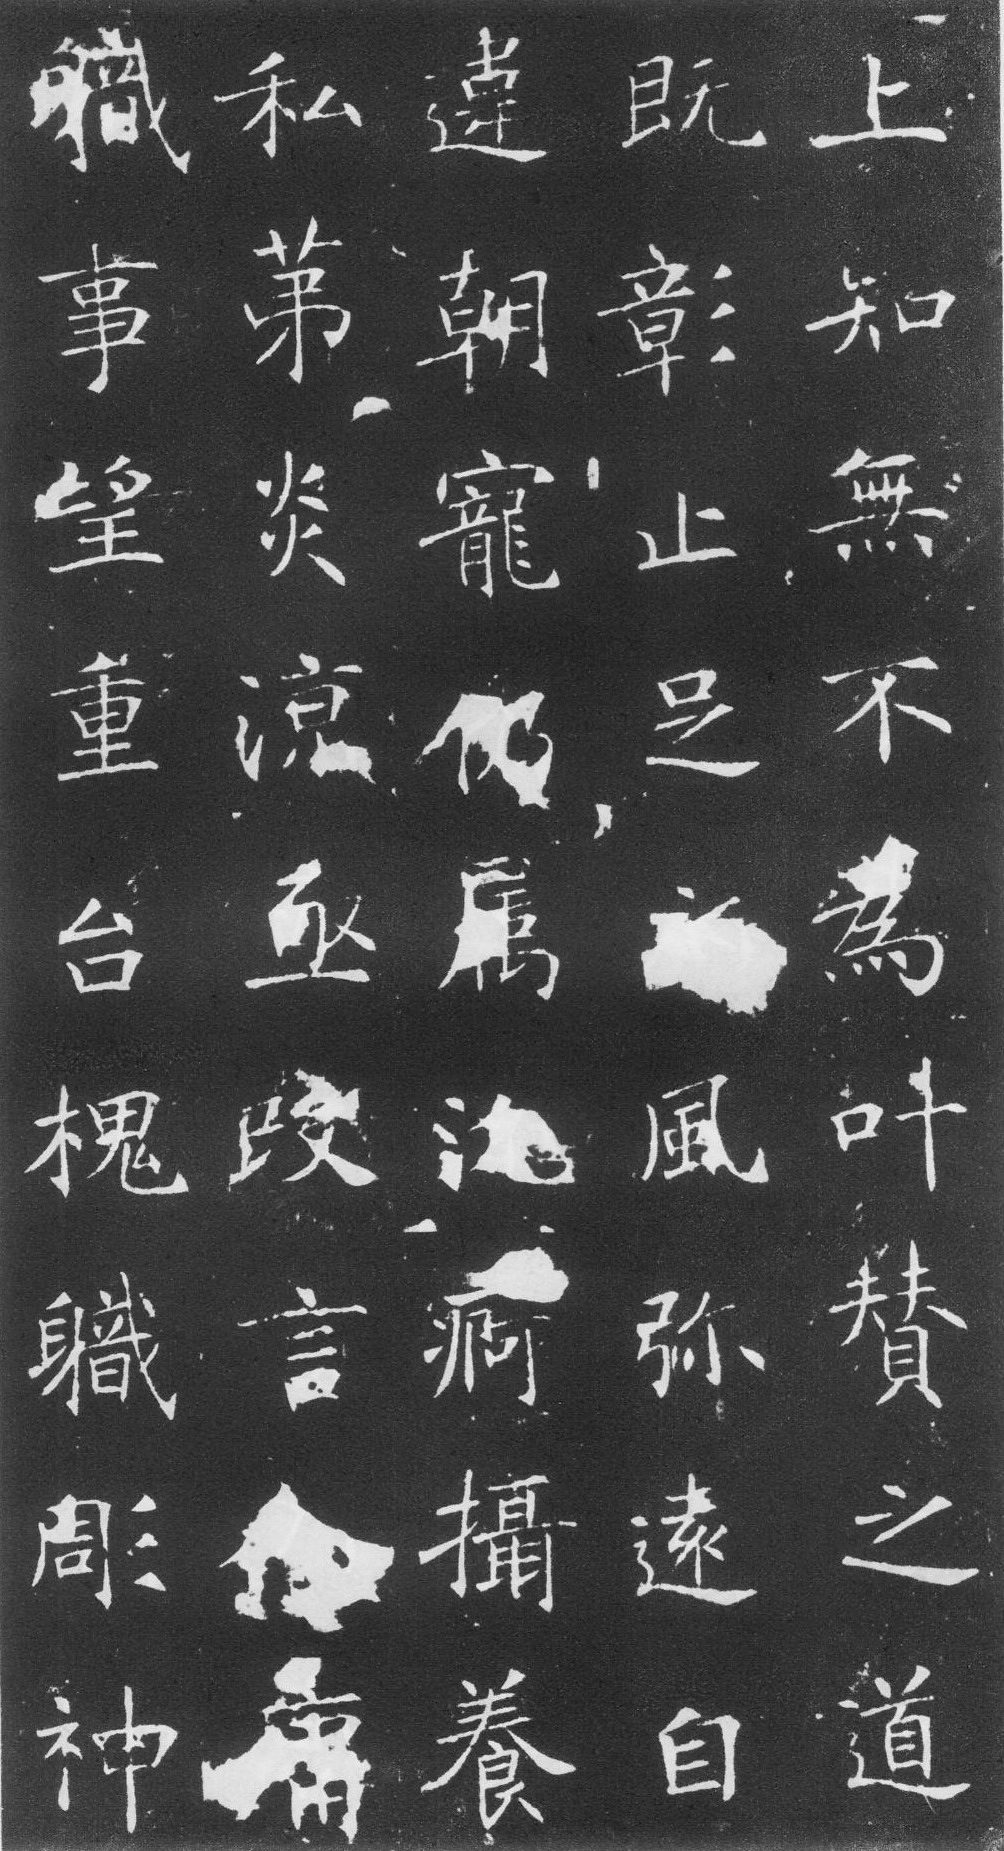 上知無不為叶賛之道
既彰止足風弥遠自
違朝寵仍属沈痾攝養
私苐炎涼亟改言
職事望重台槐職彫神